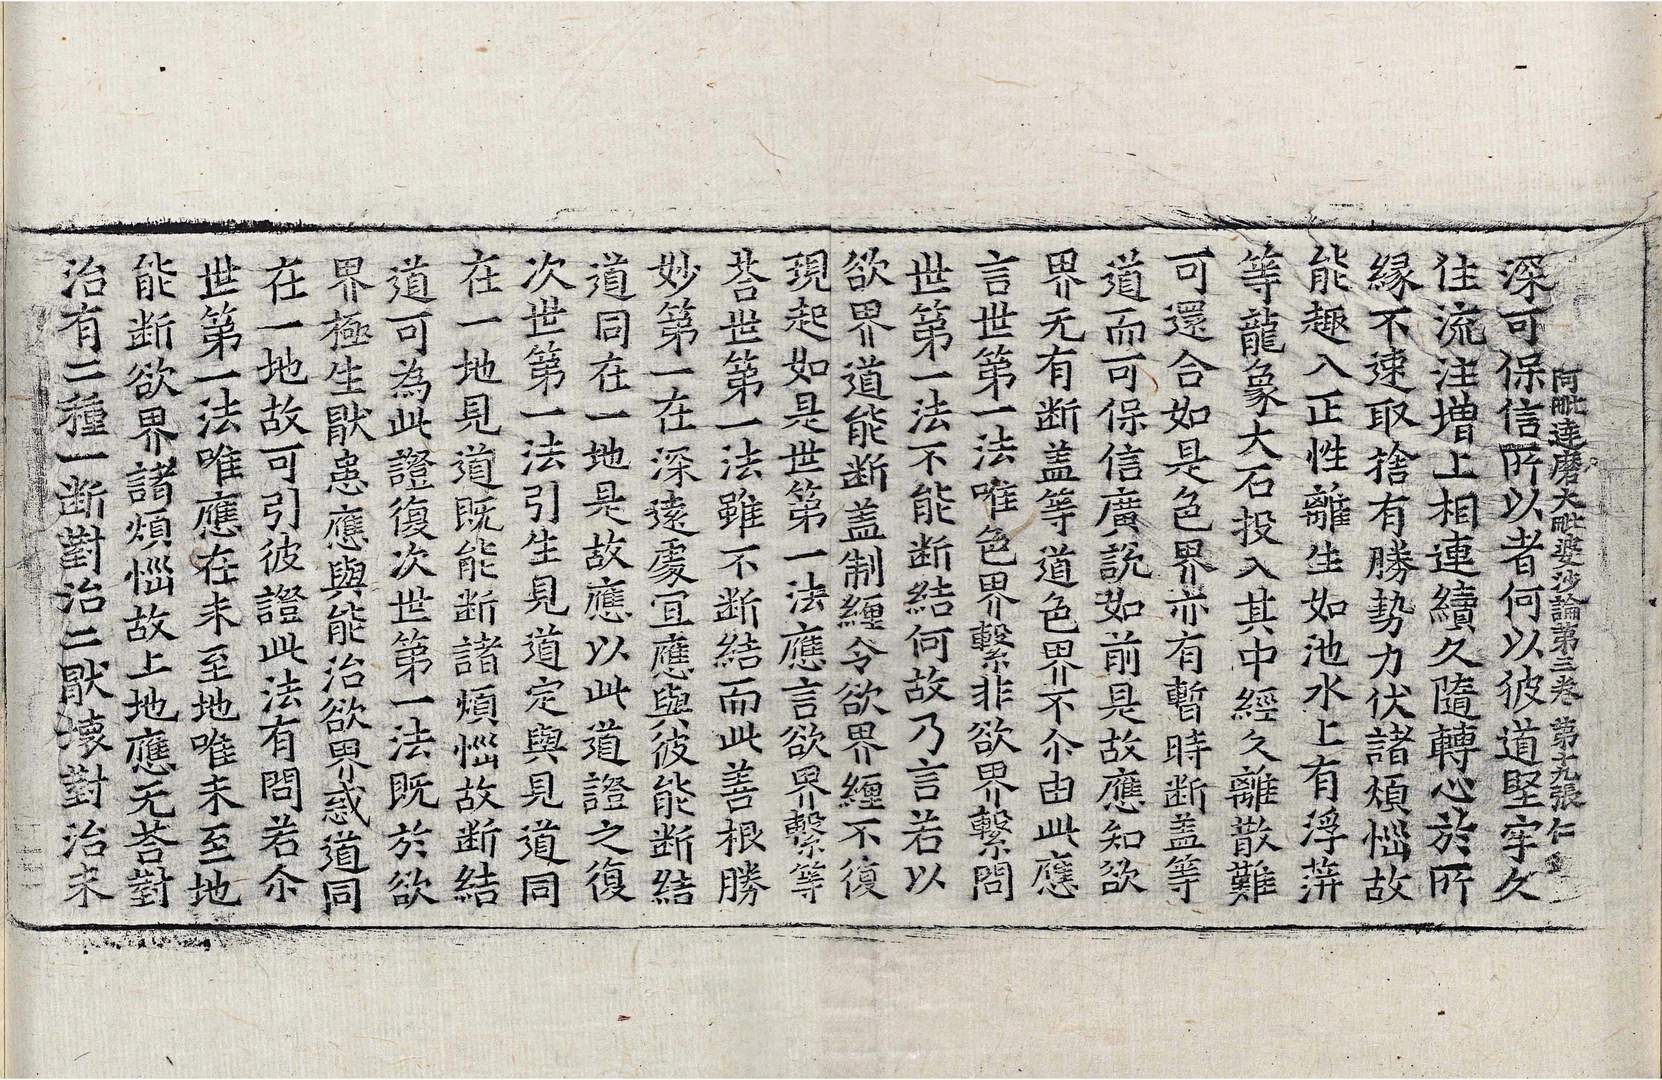 阿毗達磨大毗婆沙論第三卷 第十九張 仁
深可保信所以者何以彼道堅牢久
住流注增上相連續久隨轉心於所
緣不速取捨有勝勢力伏諸煩惱故
能趣入正性離生如池水上有浮萍
等龍象大石投入其中經久離散難
可還合如是色界亦有暫時断盖等
道而可保信廣説如前是故應知欲
界无有断盖等道色界不尒由此應
言世第一法唯色界繫非欲界繫問
世第一法不能断結何故乃言若以
欲界道能断盖制纏令欲界纏不復
現起如是世第一法應言欲界繫等
荅世第一法雖不断結而此善根勝
妙第一在深遠處宜應與彼能断結
道同在一地是故應以此道證之復
次世第一法引生見道定與見道同
在一地見道既能断諸煩惱故断結
道可為此證復次世第一法既於欲
界極生猒患應與能治欲界惑道同
在一地故可引彼證此法有問若尒
世第一法唯應在未至地唯未至地
能断欲界諸煩惱故上地應无荅對
治有二種一断對治二猒壞對治未